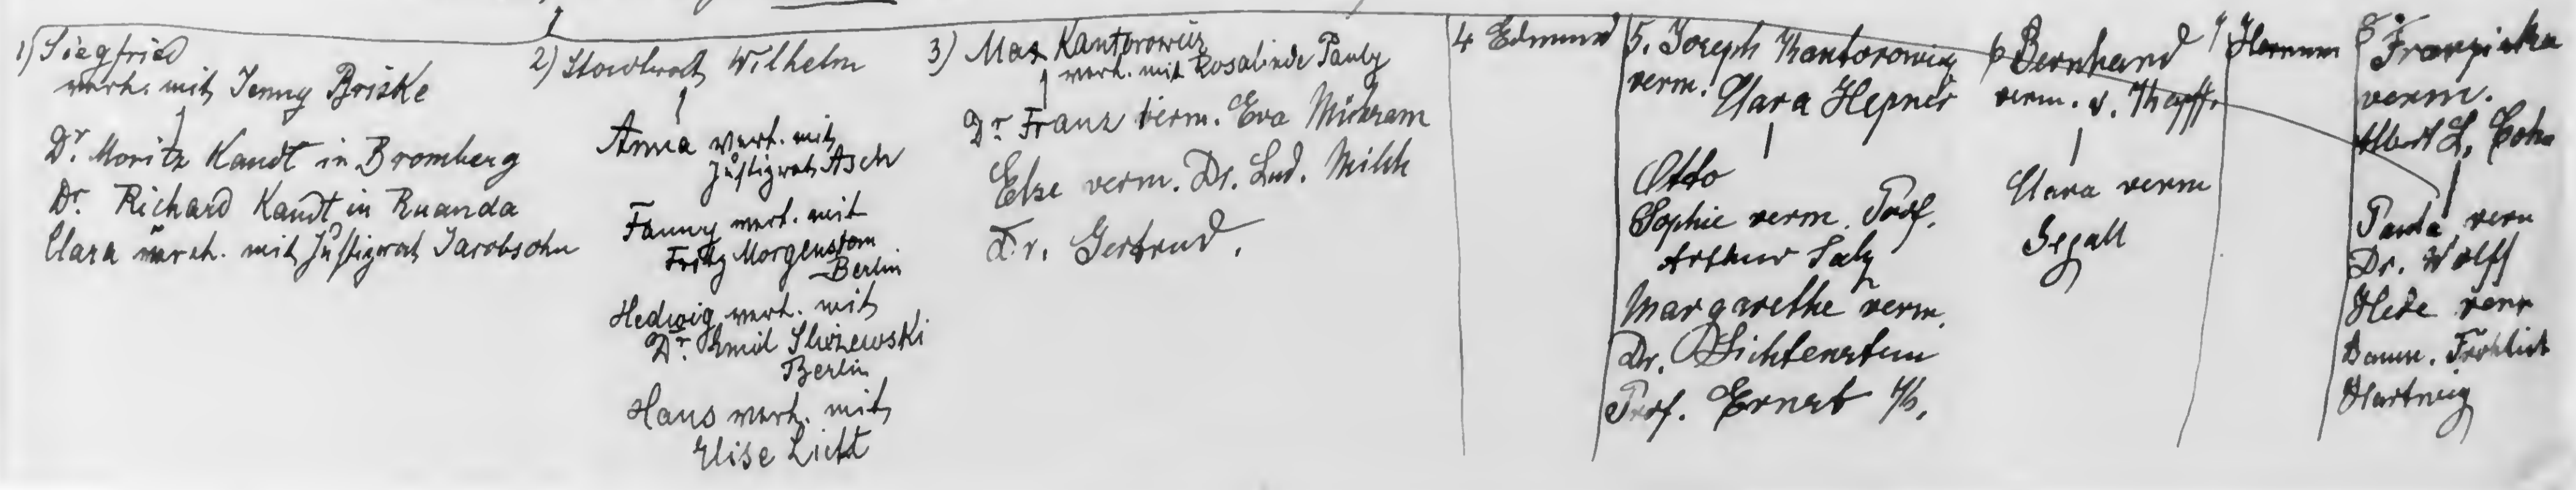 1) Siegfried
verh. mit Jenny Briske
Dr. Moritz Kandt in Bromberg
Dr. Richard Kandt in Ruanda
Clara verh. mit Justizrat Jacobsohn
2) Stadtrat Wilhelm
Anna verh. mit
Justizrat Asch
Fanny verh. mit
Fritz Morgenstern
Berlin
Hedwig verh. mit
Dr. Emil Sliżewski
Berlin
Hans verh. mit
Elise Licht
3) Max Kantorowicz
verh. mit Rosalinde Pauly
Dr. Franz verm. Eva
Else verm. Dr. Lud. Milch
Dr. Gertrud.
4 Edmund
5. Joseph Kantorowicz
verm. Clara Hepner
Otto
Sophie verm. Prof.
Arthur Salz
Margarethe verm.
Dr. Lichtenstein
Prof. Ernst K.
6 Bernhard
verm. v.
Clara verm
Segall
7 Hermann
8 Franziska
verm.
Albert L. Cohn
Paula verm
Dr. Wolff
Hede verm
Baum. Fröhlich
Hartwig